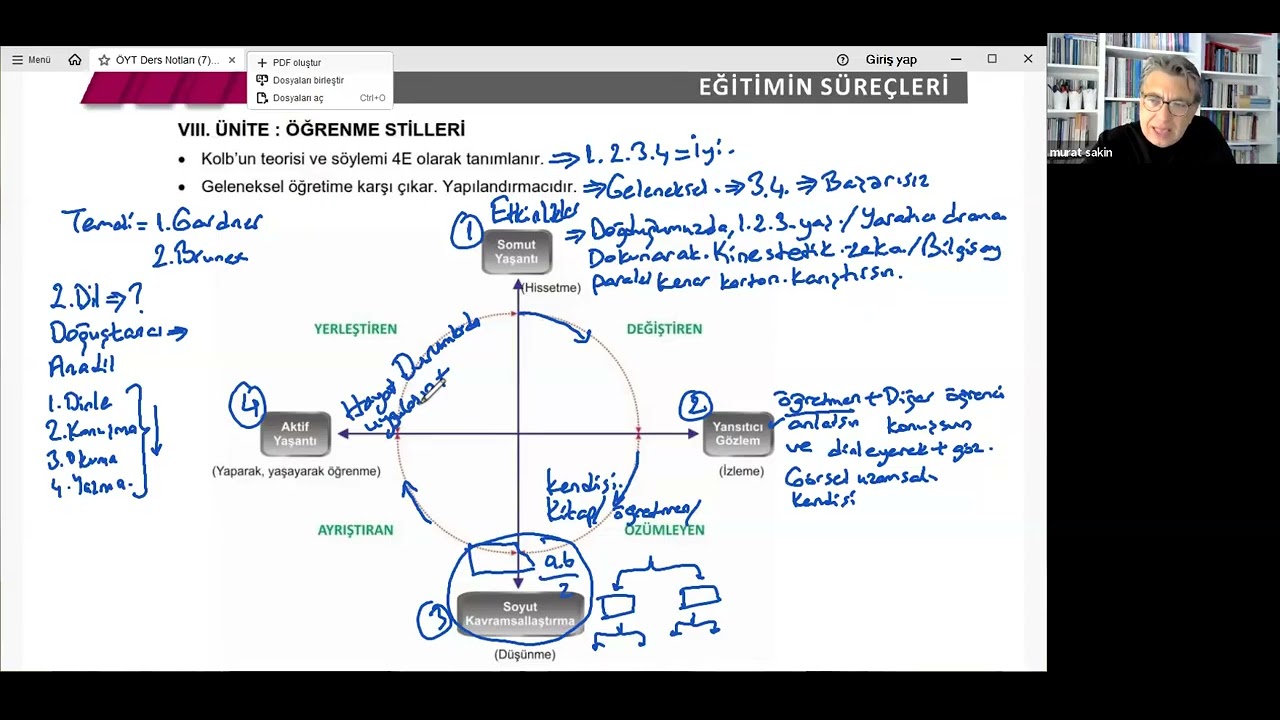 Menü
ÖYT Ders Notları (7)...
PDF oluştur
Dosyaları birleştir
Dosyaları aç Ctrl+O
Giriş yap
EĞİTİMİN SÜREÇLERİ
murat sakin
VIII. ÜNİTE : ÖĞRENME STİLLERİ
• Kolb'un teorisi ve söylemi 4E olarak tanımlanır. ⇒ 1.2.3.4 = İyi.
• Geleneksel öğretime karşı çıkar. Yapılandırmacıdır. ⇒ Geleneksel. ⇒ 3.4. ⇒ Başarısız
Temeli = 1. Gardner
2. Bruner
2. Dil ⇒ ?
Doğuştancı ⇒
Anadil
1. Dinle
2. Konuşma
3. Okuma
4. Yazma.
1 Etkinlikler
Somut
Yaşantı
(Hissetme)
⇒ Doğduğumuzda, 1.2.3. yaş / Yaratıcı drama
Dokunarak. Kinestetik. zeka /
paralel kenar karton. karıştırsın.
YERLEŞTİREN
DEĞİŞTİREN
Hayat Durumlarında
4
Aktif
Yaşantı
(Yaparak, yaşayarak öğrenme)
2
Yansıtıcı
Gözlem
(İzleme)
öğretmen + Diğer öğrenci
anlatsın konuşsun
ve dinleyerek + göz.
Görsel uzamsal
kendisi
kendisi.
Kitap / öğretmen /
AYRIŞTIRAN
ÖZÜMLEYEN
a.b
2
3
Soyut
Kavramsallaştırma
(Düşünme)